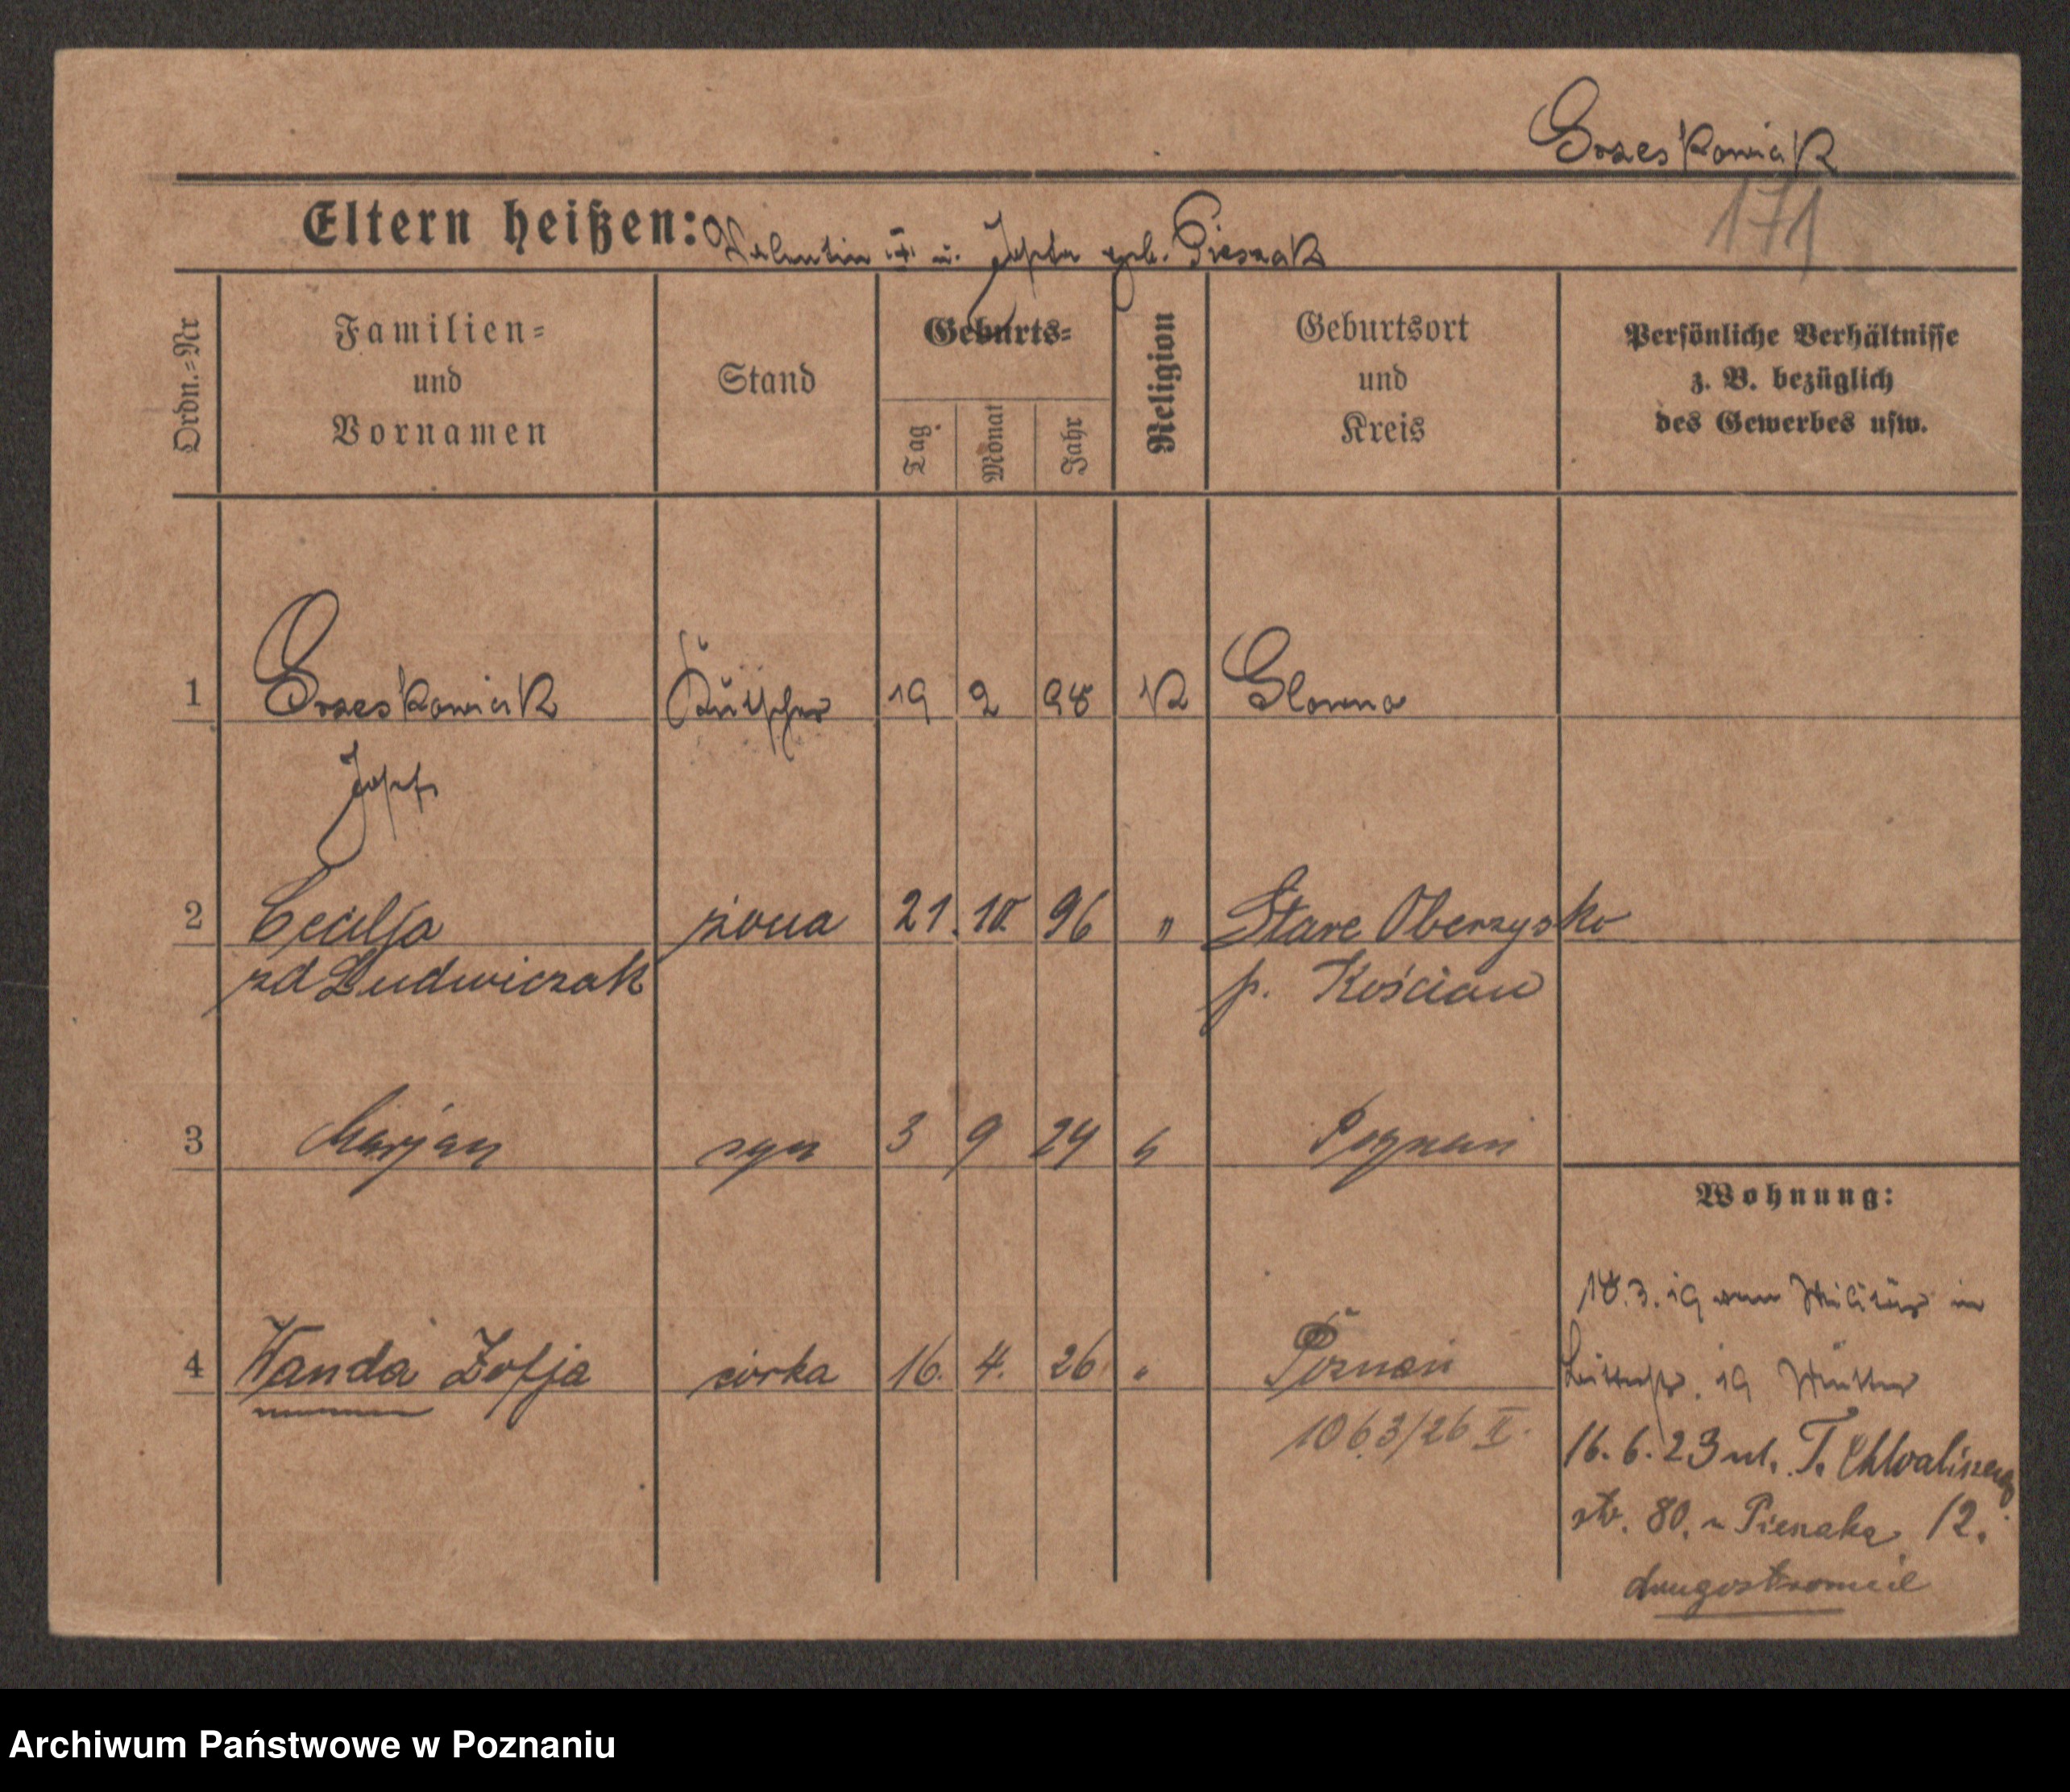 Grzeskowiak
171
Eltern heißen: Valentin u. Josefa geb. Pieszak
Ordn.=Nr
Familien=
und
Vornamen
Stand
Geburts=
Tag
Monat
Jahr
Religion
Geburtsort
und
Kreis
Persönliche Verhältnisse
z. B. bezüglich
des Gewerbes usw.
1 Grzeskowiak Kutscher 19 2 98 K Glowno
Josef
2 Cecilja żona 21. 10. 96 " Stare Oberzysko
zd Ludwiczak p. Kościan
3 Marjan syn 3 9 24 " Poznań
Wohnung:
18.3.19 vom Militär in
4 Wanda Zofja córka 16. 4. 26 " Poznań
19 Mutter
1063/26 II.
16.6.23 ul. T.
str. 80. u Pieszaka 12.